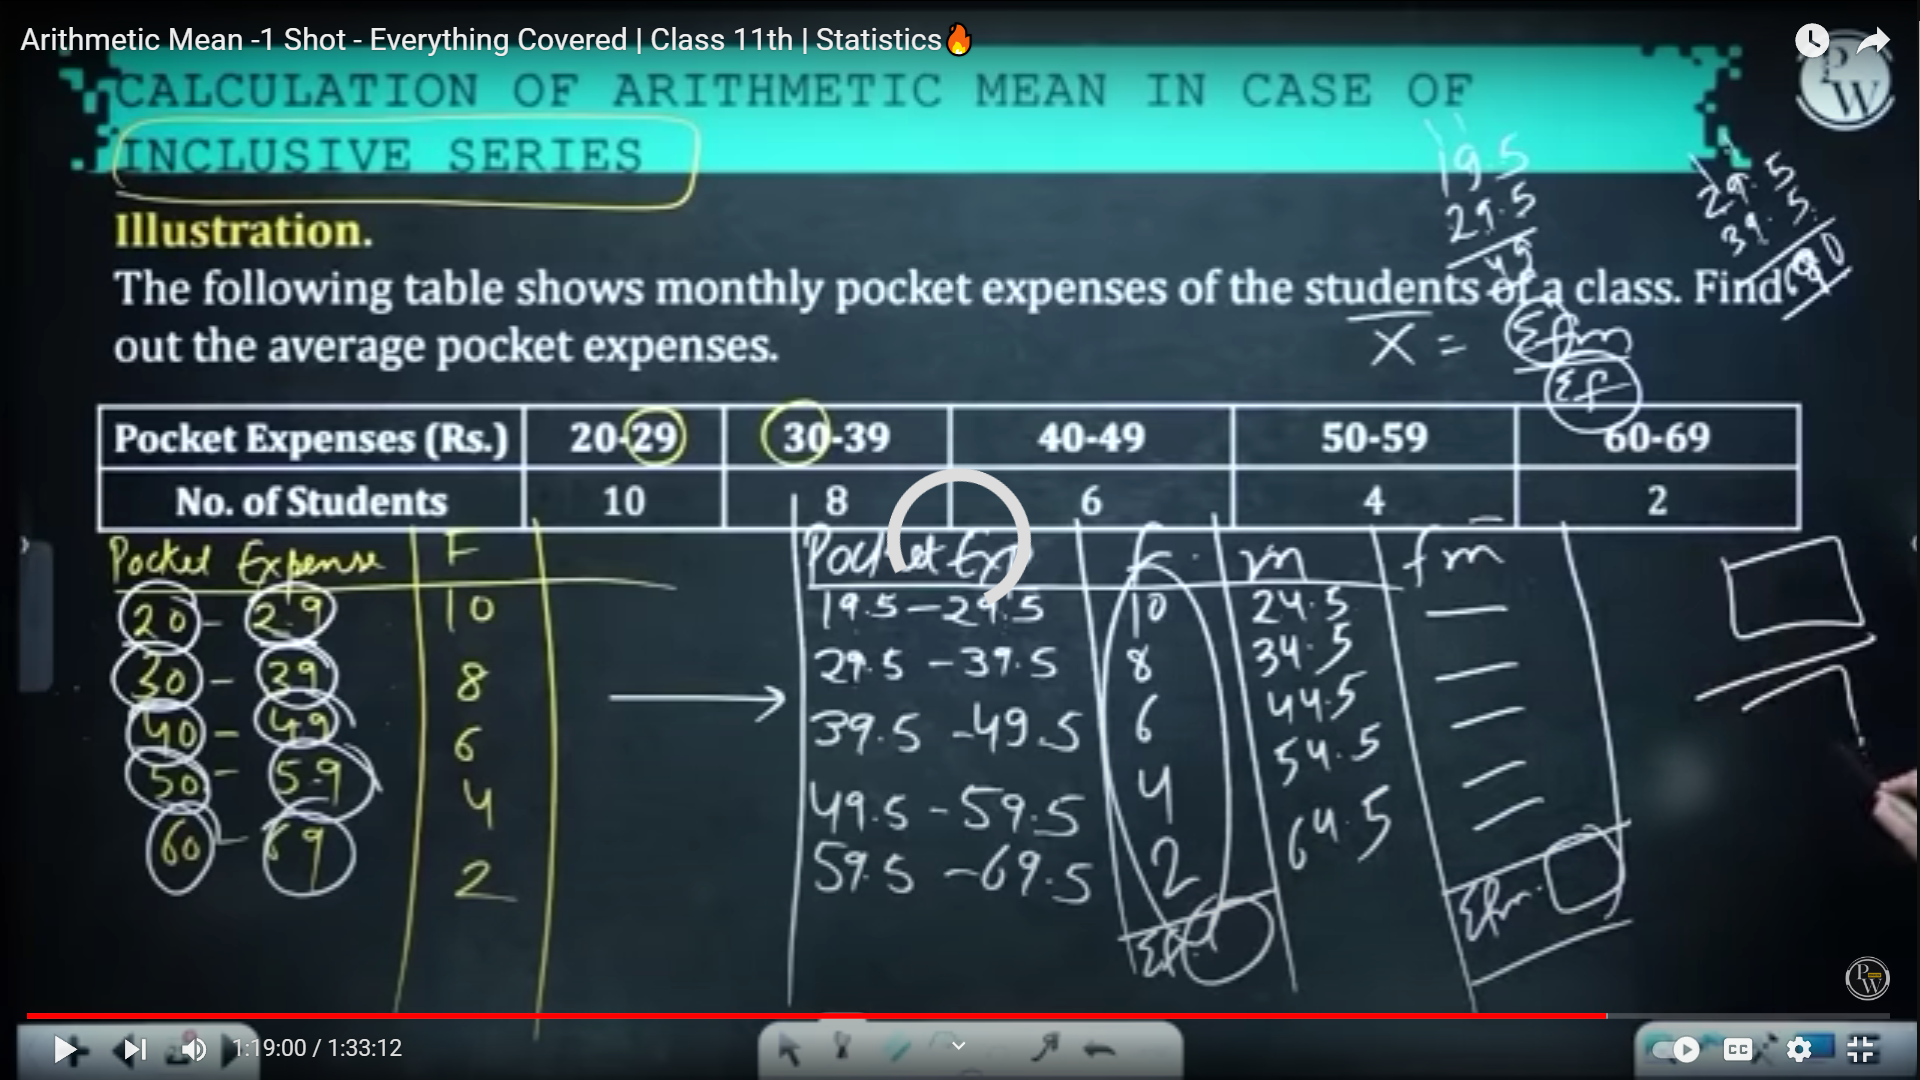 Arithmetic Mean -1 Shot - Everything Covered | Class 11th | Statistics🔥
CALCULATION OF ARITHMETIC MEAN IN CASE OF
INCLUSIVE SERIES
PW
19.5
29.5
49
29.5
39.5
Illustration.
The following table shows monthly pocket expenses of the students of a class. Find
out the average pocket expenses.
X = Σfm
Σf
Pocket Expenses (Rs.) 20-29 30-39 40-49 50-59 60-69
No. of Students 10 8 6 4 2
Pocket Expense F
20 - 29 10
30 - 39 8
40 - 49 6
50 - 59 4
60 - 69 2
Pocket Exp f m fm
19.5 - 29.5 10 24.5
29.5 - 39.5 8 34.5
39.5 - 49.5 6 44.5
49.5 - 59.5 4 54.5
59.5 - 69.5 2 64.5
Σfm
PW
1:19:00 / 1:33:12
CC